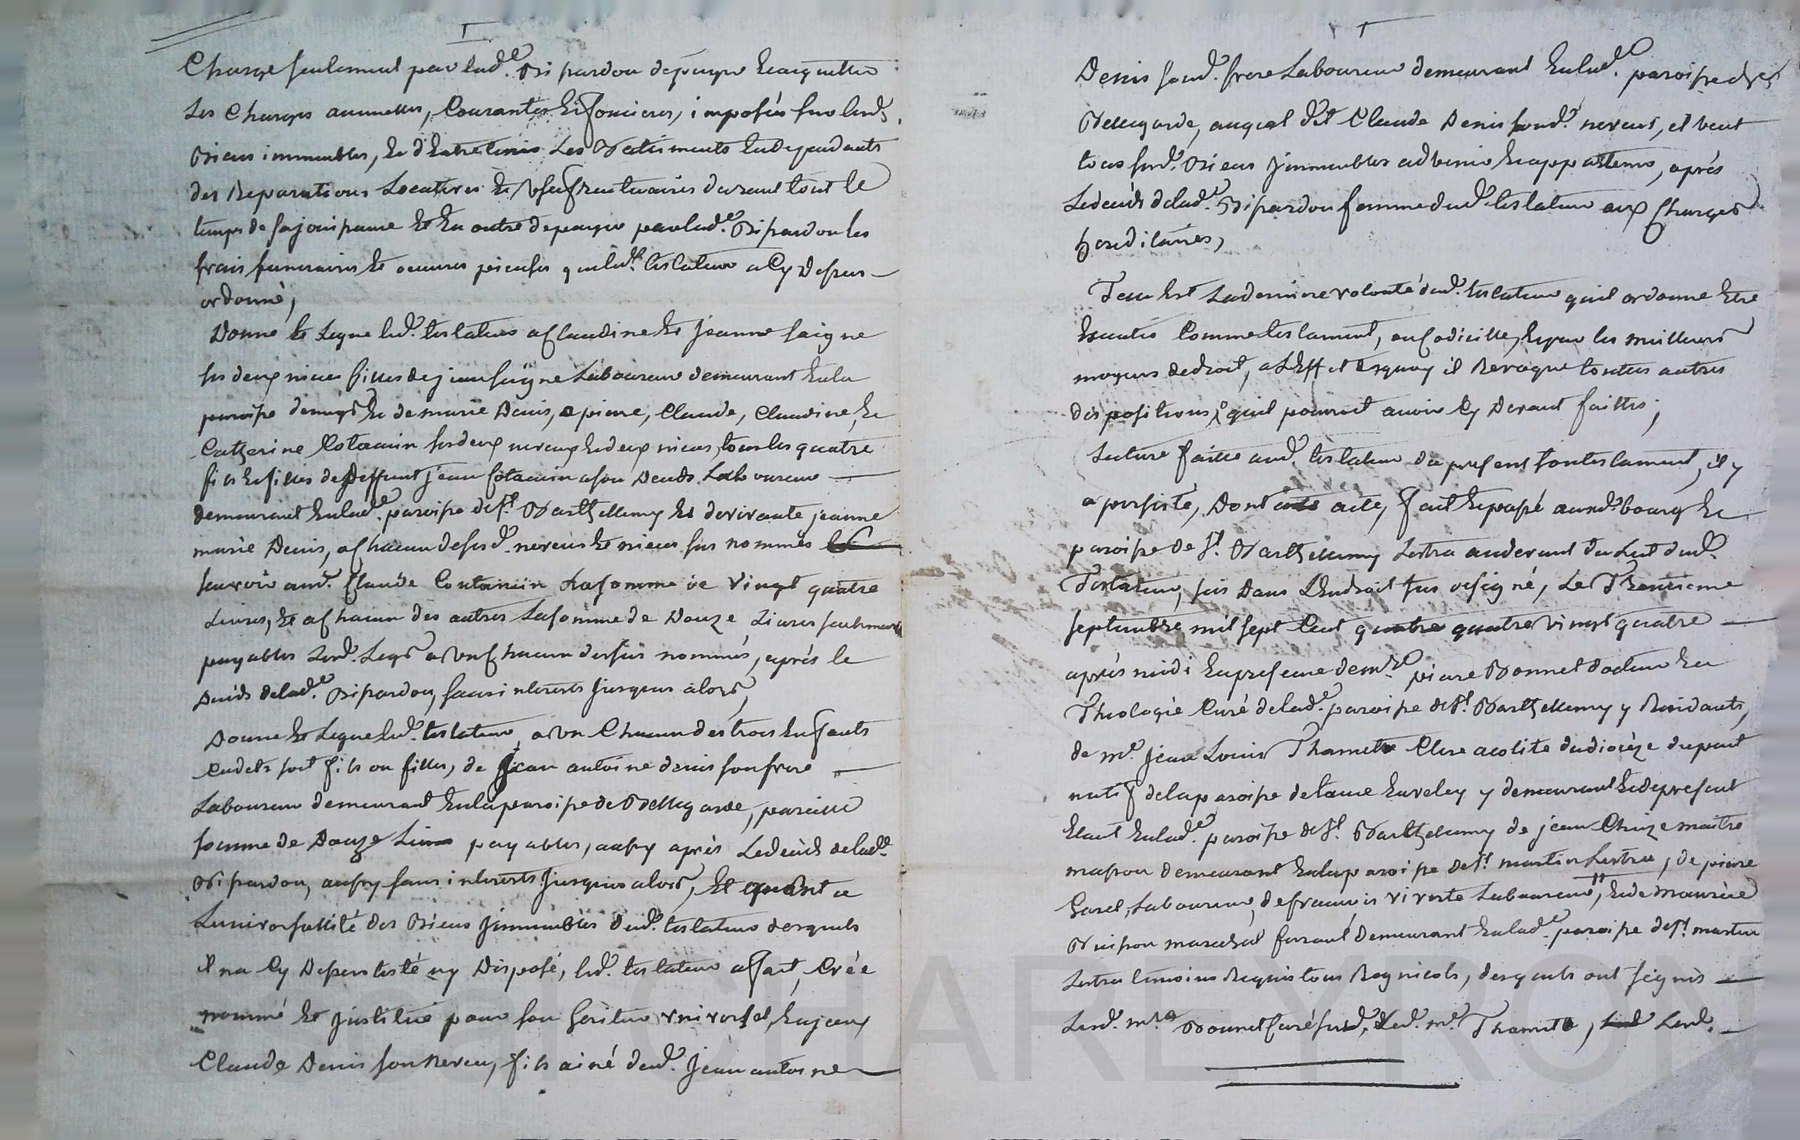 Charge seulement par lad.e Bipardon de payer Et acquitter
Les Charges annuelles, Courantes Et foncieres, imposées sur lesd.
Biens immeubles, Et d'Entretenir Les Batiments En dependants
des Reparations Locatives Et Usufructuaires durant tout le
temps de sa jouissance Et En outre de payer par lad.e Bipardon les
frais funeraires Et oeuvres pieuses que led.t testateur a Cy Dessus
ordonné,
Donne Et Legue led.t testateur a Claudine Et Jeanne faigne
ses deux nieces filles de jean faigne Laboureur demeurant En la
paroisse Et de marie Denis, a piere, Claude, Claudine, Et
Catherine Cotancin ses deux neveux Et deux nieces, tous les quatre
fils Et filles de Deffunt jean Cotancin a son Deceds Laboureur
demeurant En lad.e paroisse de St. Barthellemy Et de vivante jeanne
marie Denis, a chacun de sesd. neveux Et nieces sus nommés
sçavoir aud.t Claude Contancin La somme de Vingt quatre
Livres, Et a chacun des autres La somme de Douze Livres seulement
payables Lesd. Legs a Un chacun des sus nommés, après le
Deceds de lad.e Bipardon, sans interests Jusques alors,
Donne Et Legue led.t testateur, a Un Chacun des trois Enfants
Cadets soit fils ou filles, de Jean antoine denis son frere
Laboureur demeurant En la paroisse de Bellegarde, pareille
somme de Douze Livres payables, aussy après Le deceds de lad.e
Bipardon, aussy sans interests Jusques alors, Et quant a
Luniversallité des Biens Jmmeubles dud.t testateur desquels
il na Cy Dessus testé ny Disposé, led.t testateur a fait, Créé
nommé Et Jnstitué pour son heritier Universel,
Claude Denis son Neveu, fils ainé dud.t Jean antoine
Denis sond.t frere Laboureur demeurant En lad.e paroisse de
Bellegarde, auquel dit Claude Denis sond.t neveux, il veut
tous sesd. Biens Jmmeubles advenir Et appartenir, après
Le deceds de lad.e Bipardon femme dud.t testateur aux Charges
hereditaires,
Telle Est La derniere volonté dud.t testateur quil ordonne Etre
Executée Comme testament, ou Codicille, Et par les meilleurs
moyens de droit, a L'Effet desquoy il Revoque toutes autres
dispositions, quil pourroit avoir Cy Devant faittes;
Lecture faitte aud.t testateur du present son testament, il y
a persisté, Dont acte, fait Et passé aud.t bourg Et
paroisse de St. Barthellemy Lestra au devant du Lit dud.t
Testateur, sis Dans L'Endroit sus designé, Le Trentieme
septembre mil sept Cent quatre vingt quatre
après midi En presence de m.re piere Bonnet docteur En
Theologie Curé de lad.e paroisse de St. Barthellemy y Residant,
de m.e Jean Louis Thamet Clerc acolite du diocèze du puit
natif de la paroisse de y demeurant Et de present
Etant En lad.e paroisse de St. Barthelemy de jean Chize maitre
masson demeurant En la paroisse de St. martin Lestra, de piere
Garel, Laboureur, de francois viverte Laboureur, Et de
marechal ferrant Demeurant En lad.e paroisse de St. martin
Lestra temoins Requis tous Regnicols, desquels ont signés
Lesd. m.re Bonnet Curé susd., Led. m.e Thamet, Lesd.